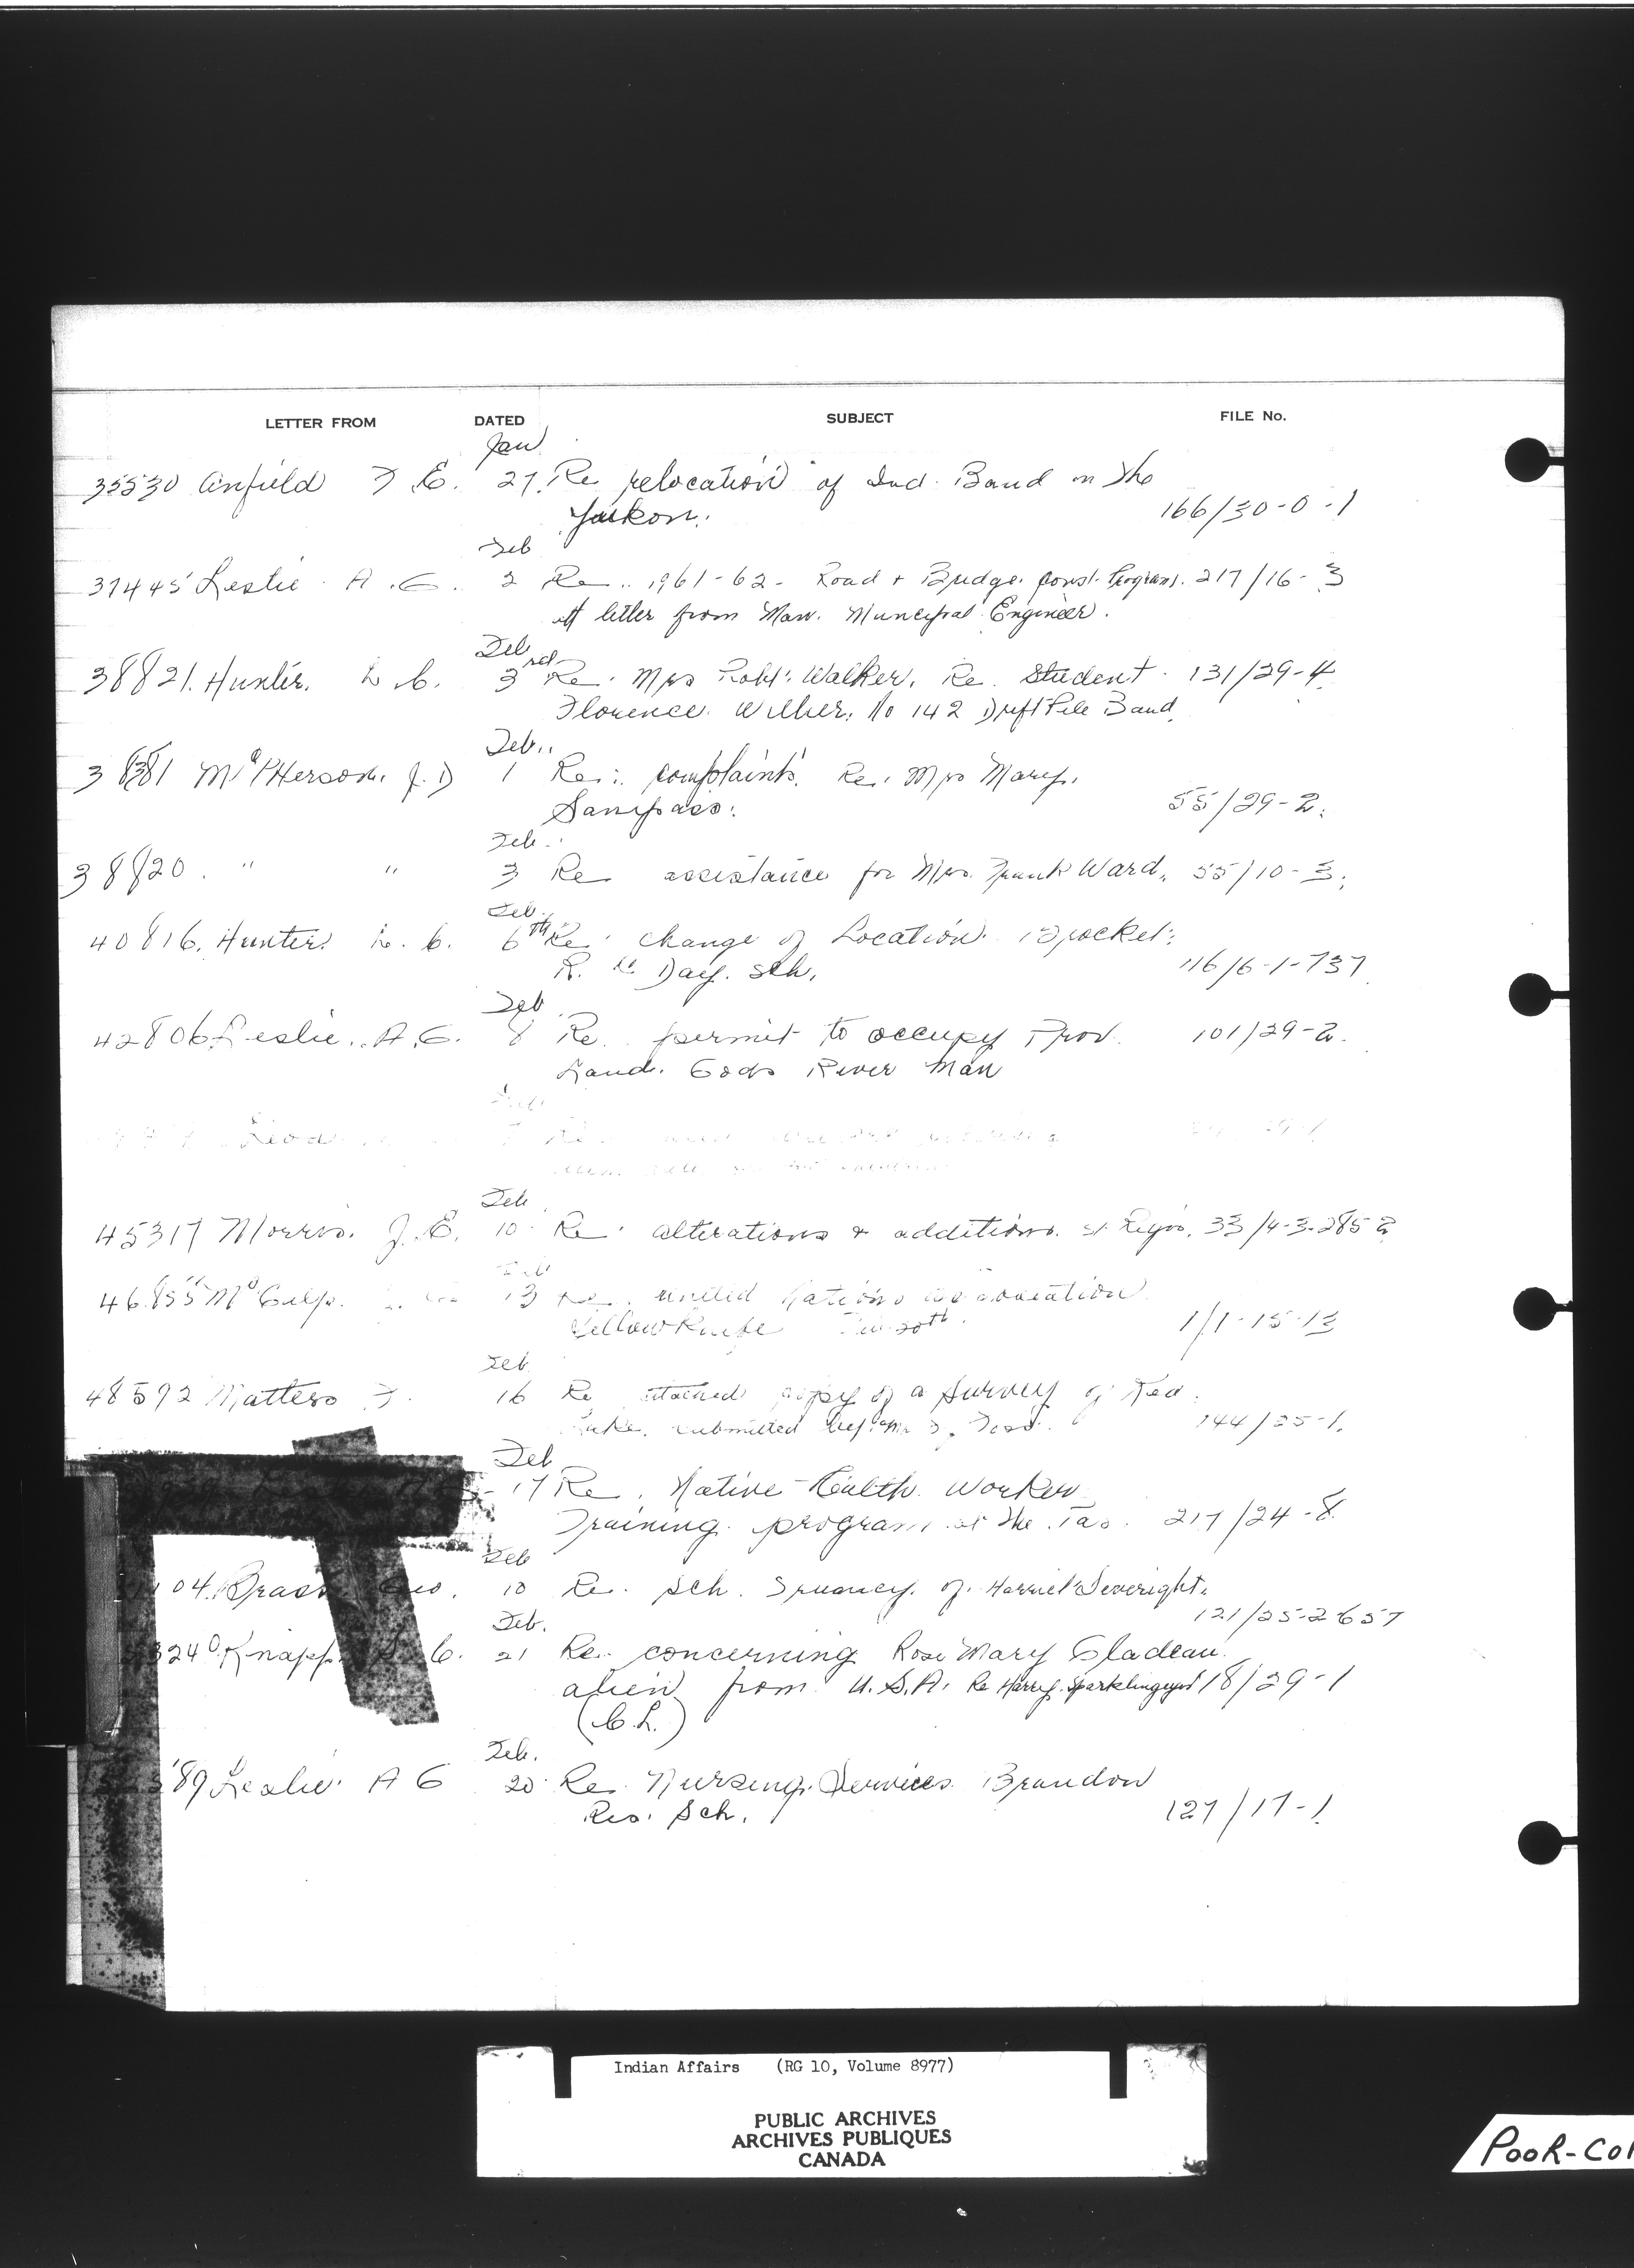 LETTER FROM DATED SUBJECT FILE No.
Jan
35530 Anfield F. E. 27. Re relocation of Ind. Band in the
Yukon. 166/30-0-1
Feb
37445 Leslie A. G. 2 Re. 1961-62 - Road + Bridge Const. Program. 217/16-3
att letter from Man. Muncipal Engineer.
Feb
38821. Hunter. L. C. 3rd Re. Mrs Robt. Walker. Re. Student. 131/29-4
Florence. Willier. No 142 Driftpile Band.
Feb.
38381 McPherson. J. D 1 Re. complaints. Re. Mrs Mary.
Sanipass. 55/29-2.
Feb.
38820. " " 3 Re assistance for Mrs. Frank Ward. 55/10-3.
Feb.
40816. Hunter. L. C. 6th Re. change of Location. Brocket.
R. C. Day. Sch. 116/6-1-737
Feb
42806 Leslie. A. G. 8 Re. permit to occupy Prov. 101/29-2.
Land. Gods River Man
Feb
45317 Morris. J. E. 10 Re. alterations & additions. St Regis. 33/4-3-285 2
Feb
46855 McGilp. 13 Re. United Nations association
Yellowknife 20th. 1/1-15-13
Feb
48592 Matters F. 16 Re attached copy of a survey of Red.
Lake. submitted by Mr 144/25-1.
Feb
17 Re. Native Health Worker
Training. program at The Pas. 217/24-8.
Feb
04. Brass Geo. 10 Re. Sch. Truancy. of. Harriet Severight.
121/25-2657
Feb.
324 Knapp C. 21 Re. concerning Rose Mary Gladeau.
alien from U.S.A. Re Harry. Sparklingeyes 18/29-1
(C.L.)
Feb.
89 Leslie. A G 20 Re. Nursing. Services. Brandon
Res. Sch. 127/17-1
Indian Affairs (RG 10, Volume 8977)
PUBLIC ARCHIVES
ARCHIVES PUBLIQUES
CANADA
POOR-COP